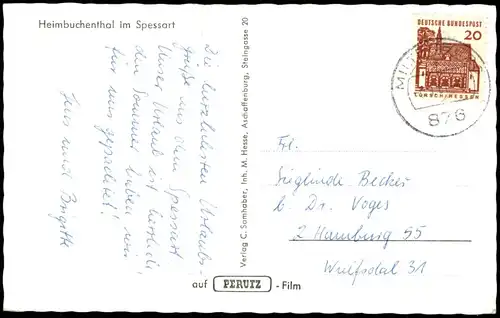 Heimbuchenthal im Spessart
Die herzlichsten Urlaubs-
grüße aus dem Spessart
Unser Urlaub ist herrlich
den Sommer haben wir
für uns gepachtet!
Jens und Brigitte
Verlag C. Samhaber, Inh. M. Hesse, Aschaffenburg, Steingasse 20
auf PERUTZ - Film
DEUTSCHE BUNDESPOST
20
LORSCH/HESSEN
MIL
876
Frl.
Sieglinde Becker
b. Dr. Voges
2 Hamburg 55
Wulfsdal 31